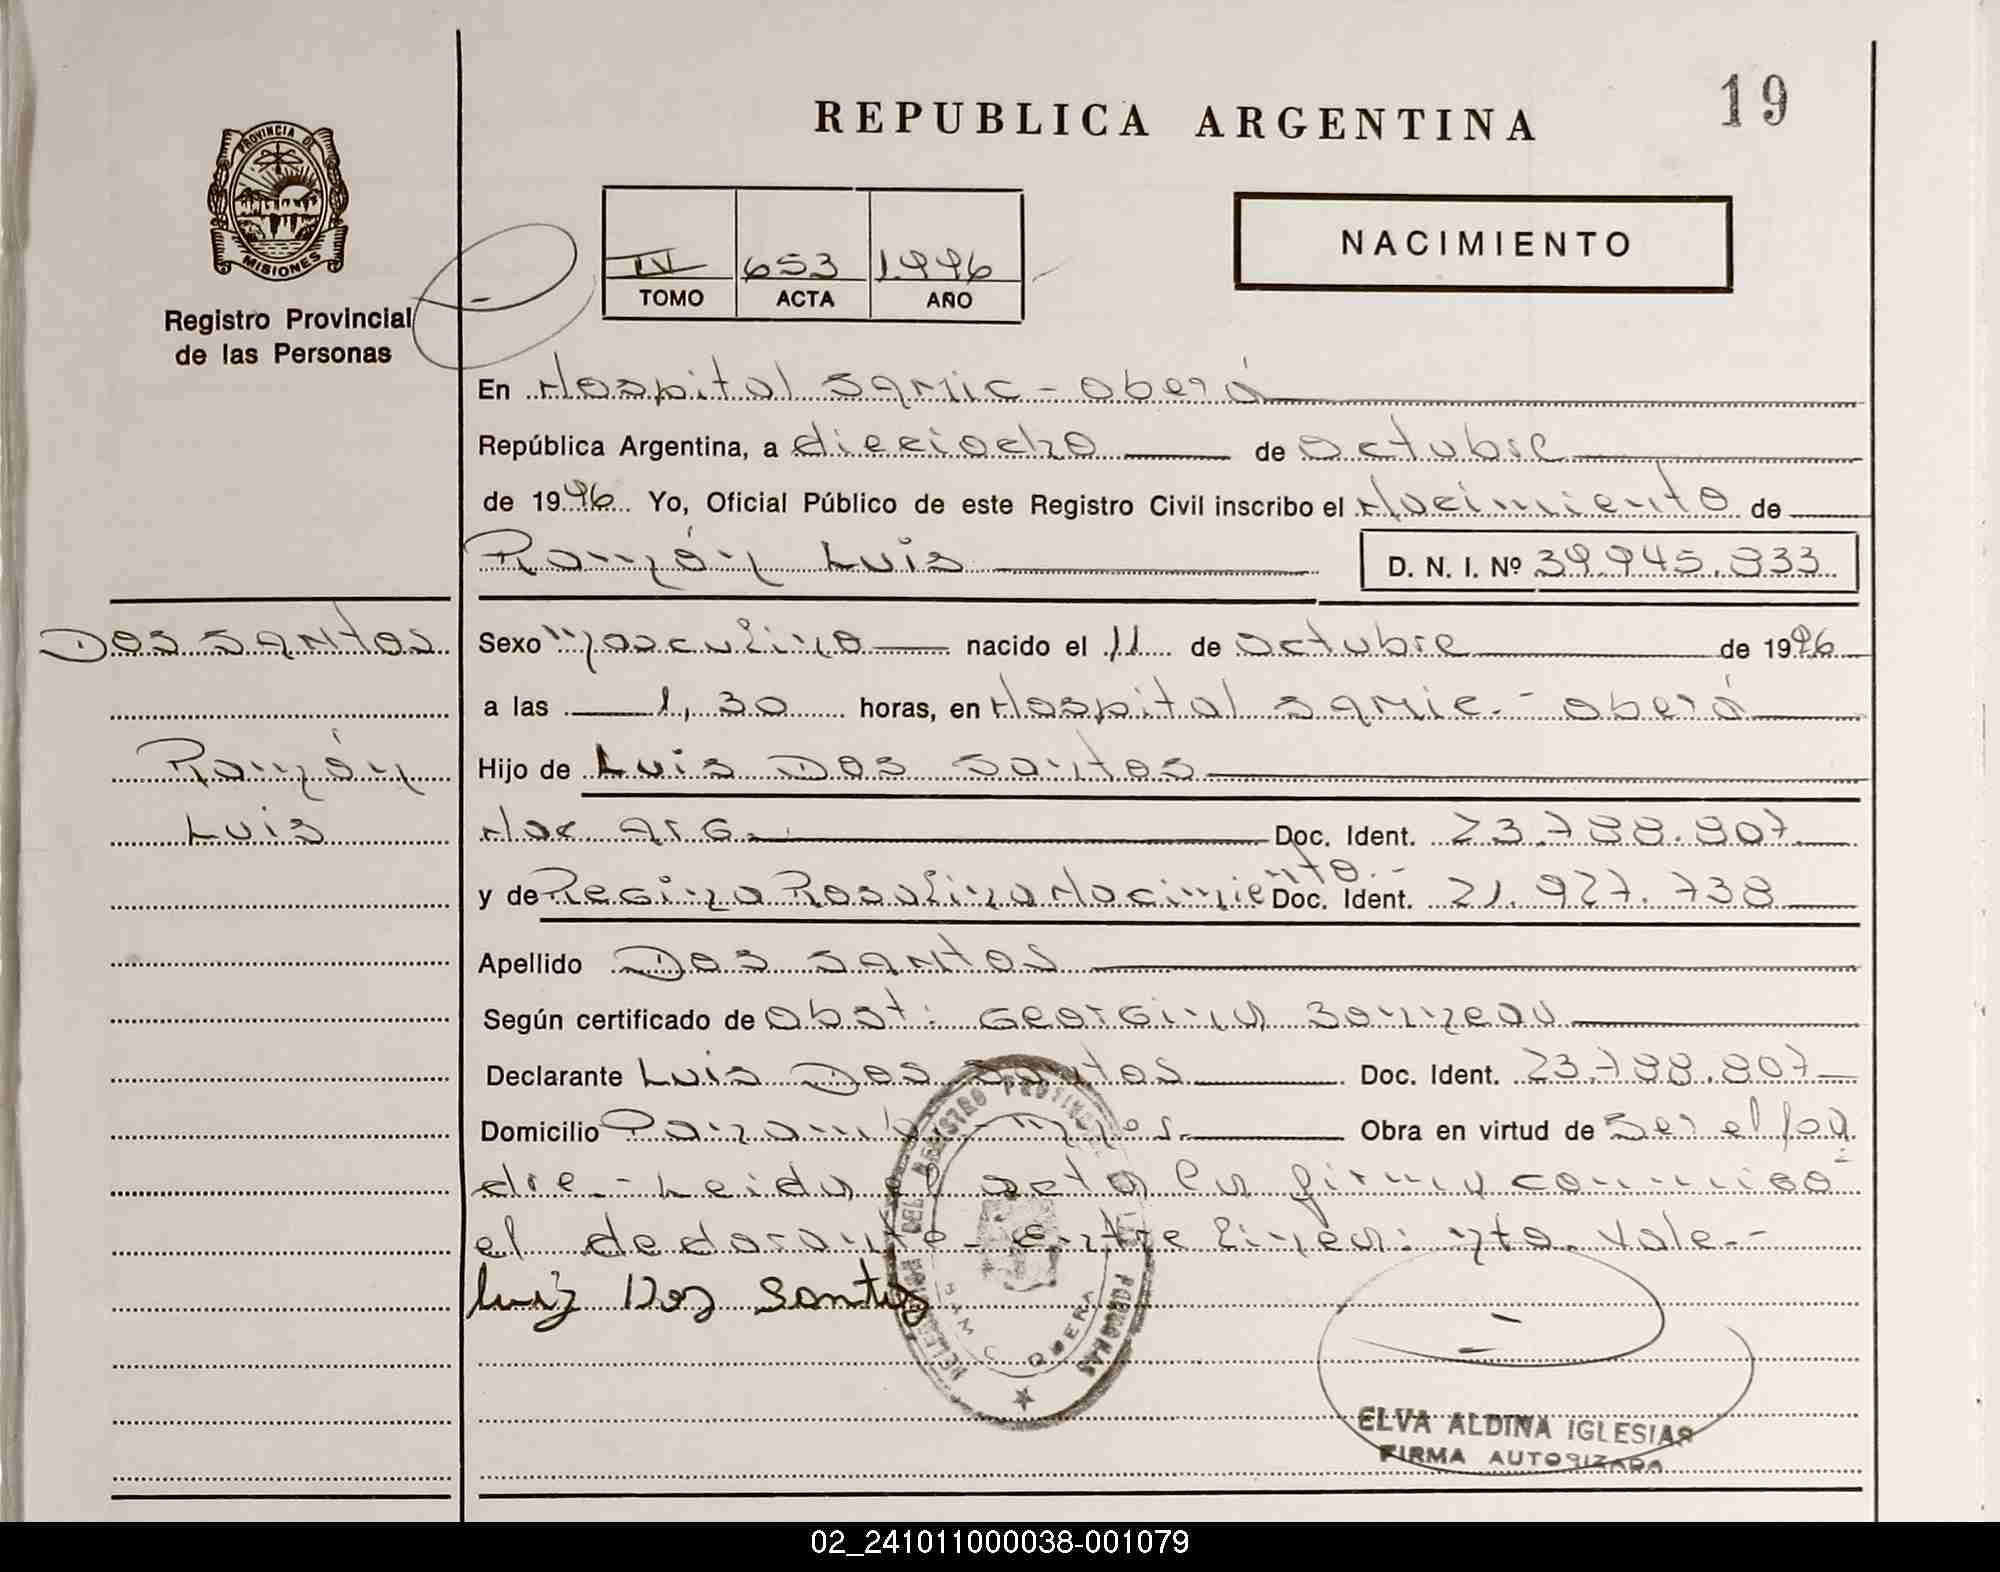 REPUBLICA ARGENTINA
19
PROVINCIA DE
MISIONES
Registro Provincial
de las Personas
IV 653 1996
TOMO ACTA AÑO
NACIMIENTO
En Hospital SAMIC - Oberá
República Argentina, a dieciocho de Octubre
de 1996 Yo, Oficial Público de este Registro Civil inscribo el Nacimiento de
Ramón Luis D. N. I. Nº 39.945.833
Dos Santos
Ramón
Luis
Sexo Masculino nacido el 11 de Octubre de 1996
a las 1,30 horas, en Hospital SAMIC.- Oberá
Hijo de Luis Dos Santos
Nac Arg. Doc. Ident. 23.788.807
nto.-
y de Regina Rosalina Nacimie Doc. Ident. 21.927.738
Apellido Dos Santos
Según certificado de Obst: Georgina
Declarante Luis Dos Santos Doc. Ident. 23.788.807
Domicilio Panambí - Mnes. Obra en virtud de Ser el pa
dre.- Leida el acta la firma conmigo
el declarante.- Entre linea: nto. Vale.-
Luiz Dos Santos
DELEGACION DEL REGISTRO PROVINCIAL DE LAS PERSONAS
SAMIC OBERA
ELVA ALDINA IGLESIAS
FIRMA AUTORIZADA
02_241011000038-001079